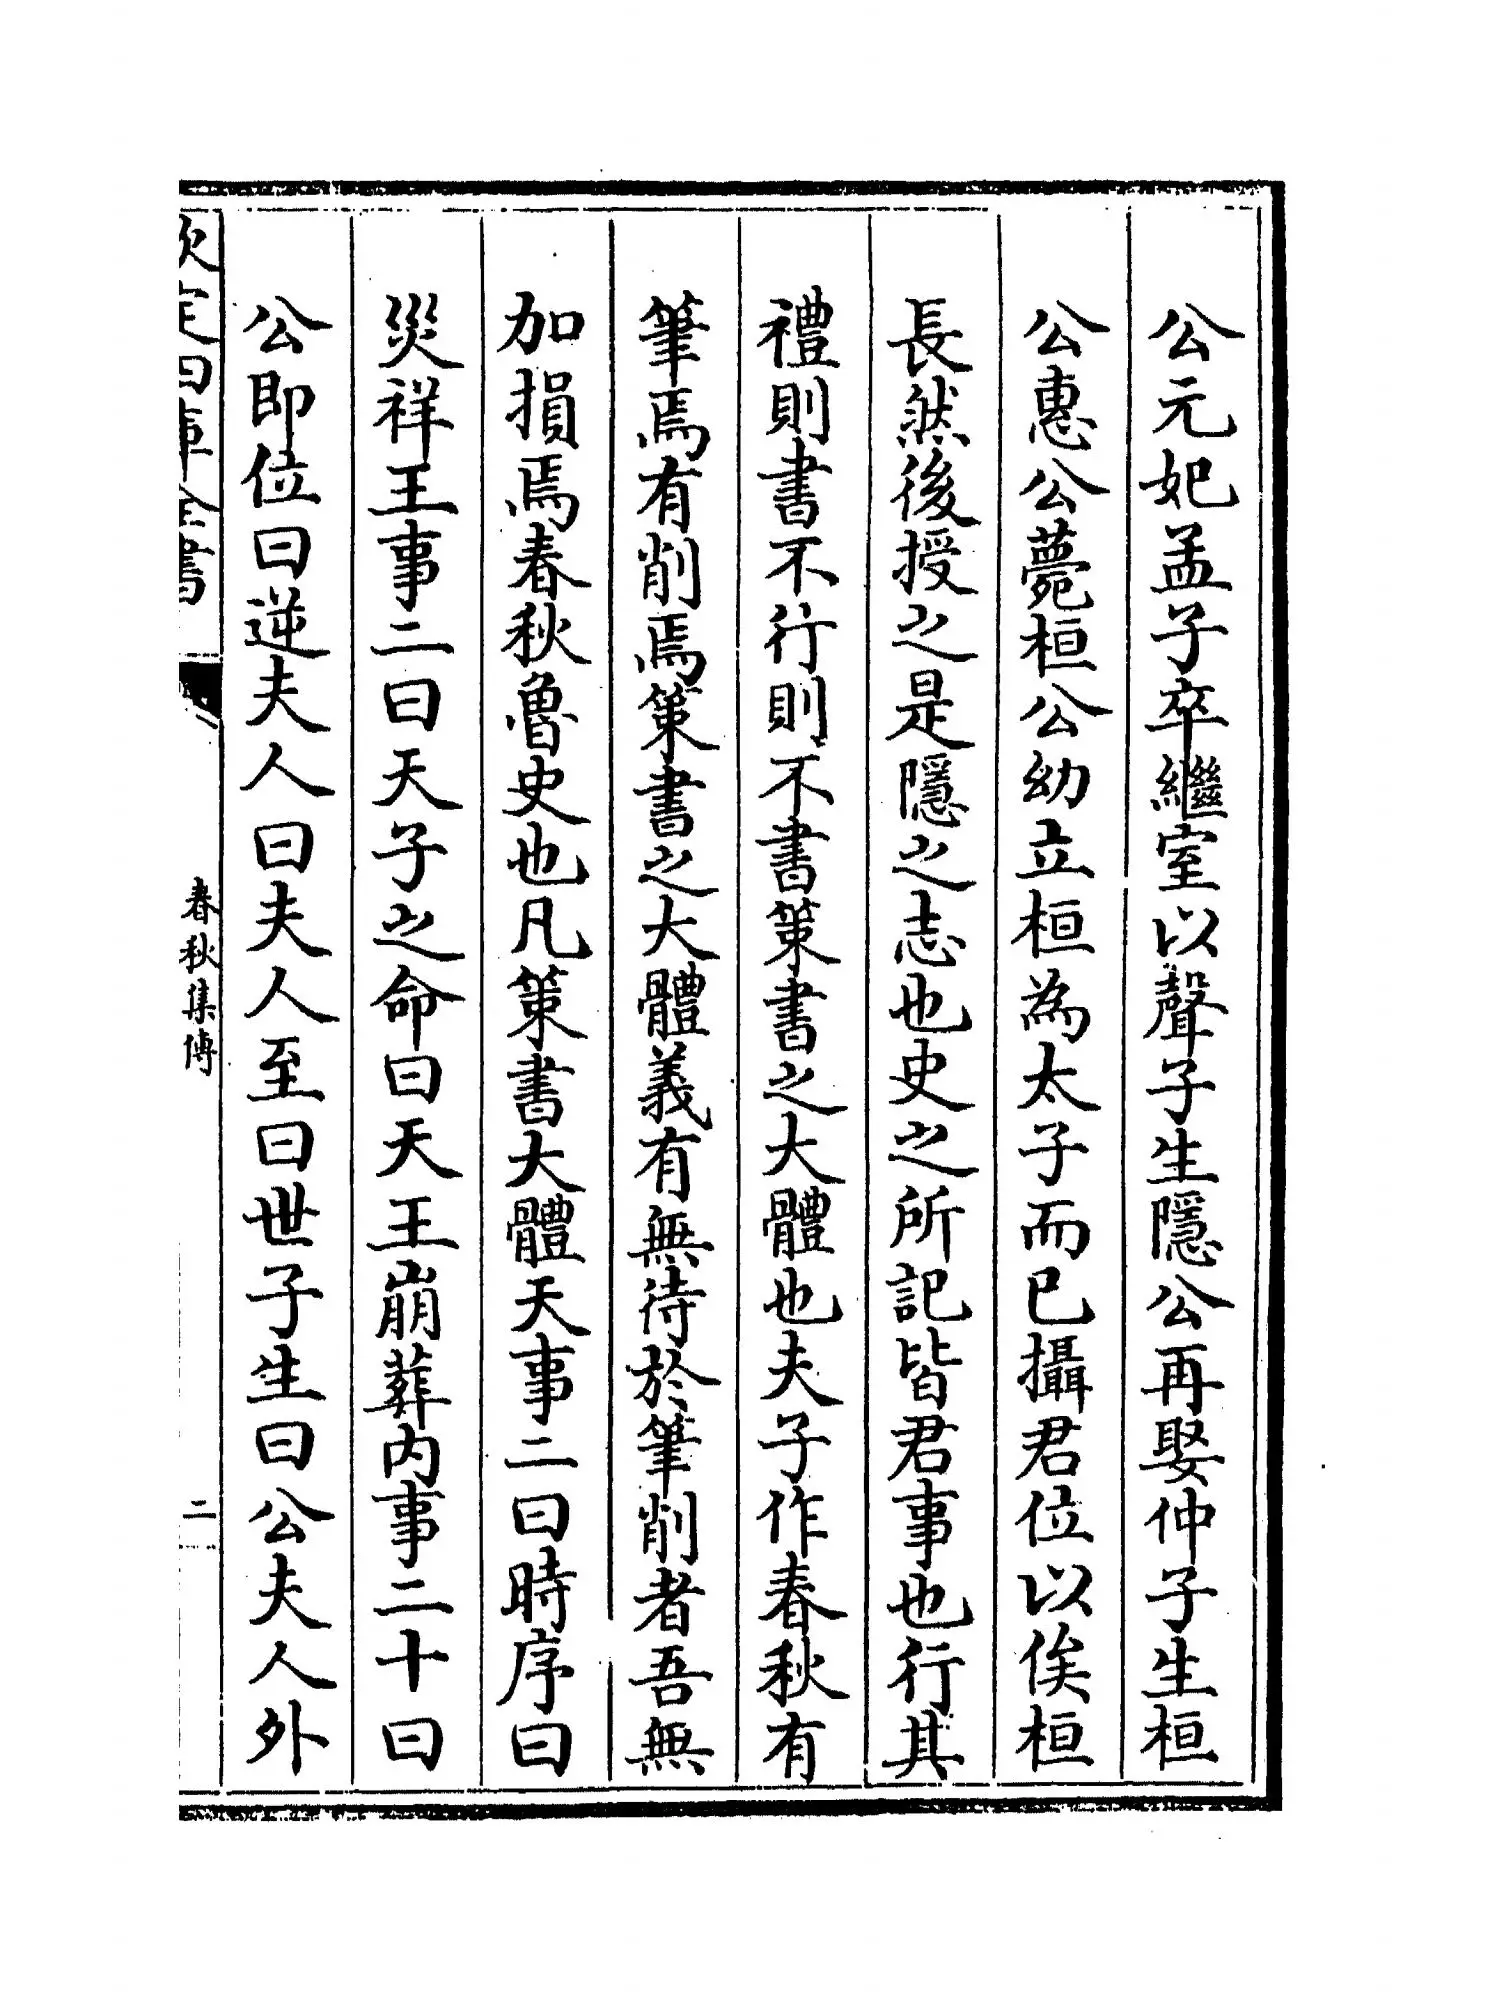 公元妃孟子卒繼室以聲子生隱公再娶仲子生桓
公惠公薨桓公幼立桓為太子而已攝君位以俟桓
長然後授之是隱之志也史之所記皆君事也行其
禮則書不行則不書策書之大體也夫子作春秋有
筆焉有削焉策書之大體義有無待於筆削者吾無
加損焉春秋魯史也凡策書大體天事二曰時序曰
災祥王事二曰天子之命曰天王崩葬内事二十曰
公即位曰逆夫人曰夫人至曰世子生曰公夫人外
欽定四庫全書
春秋集傳
二